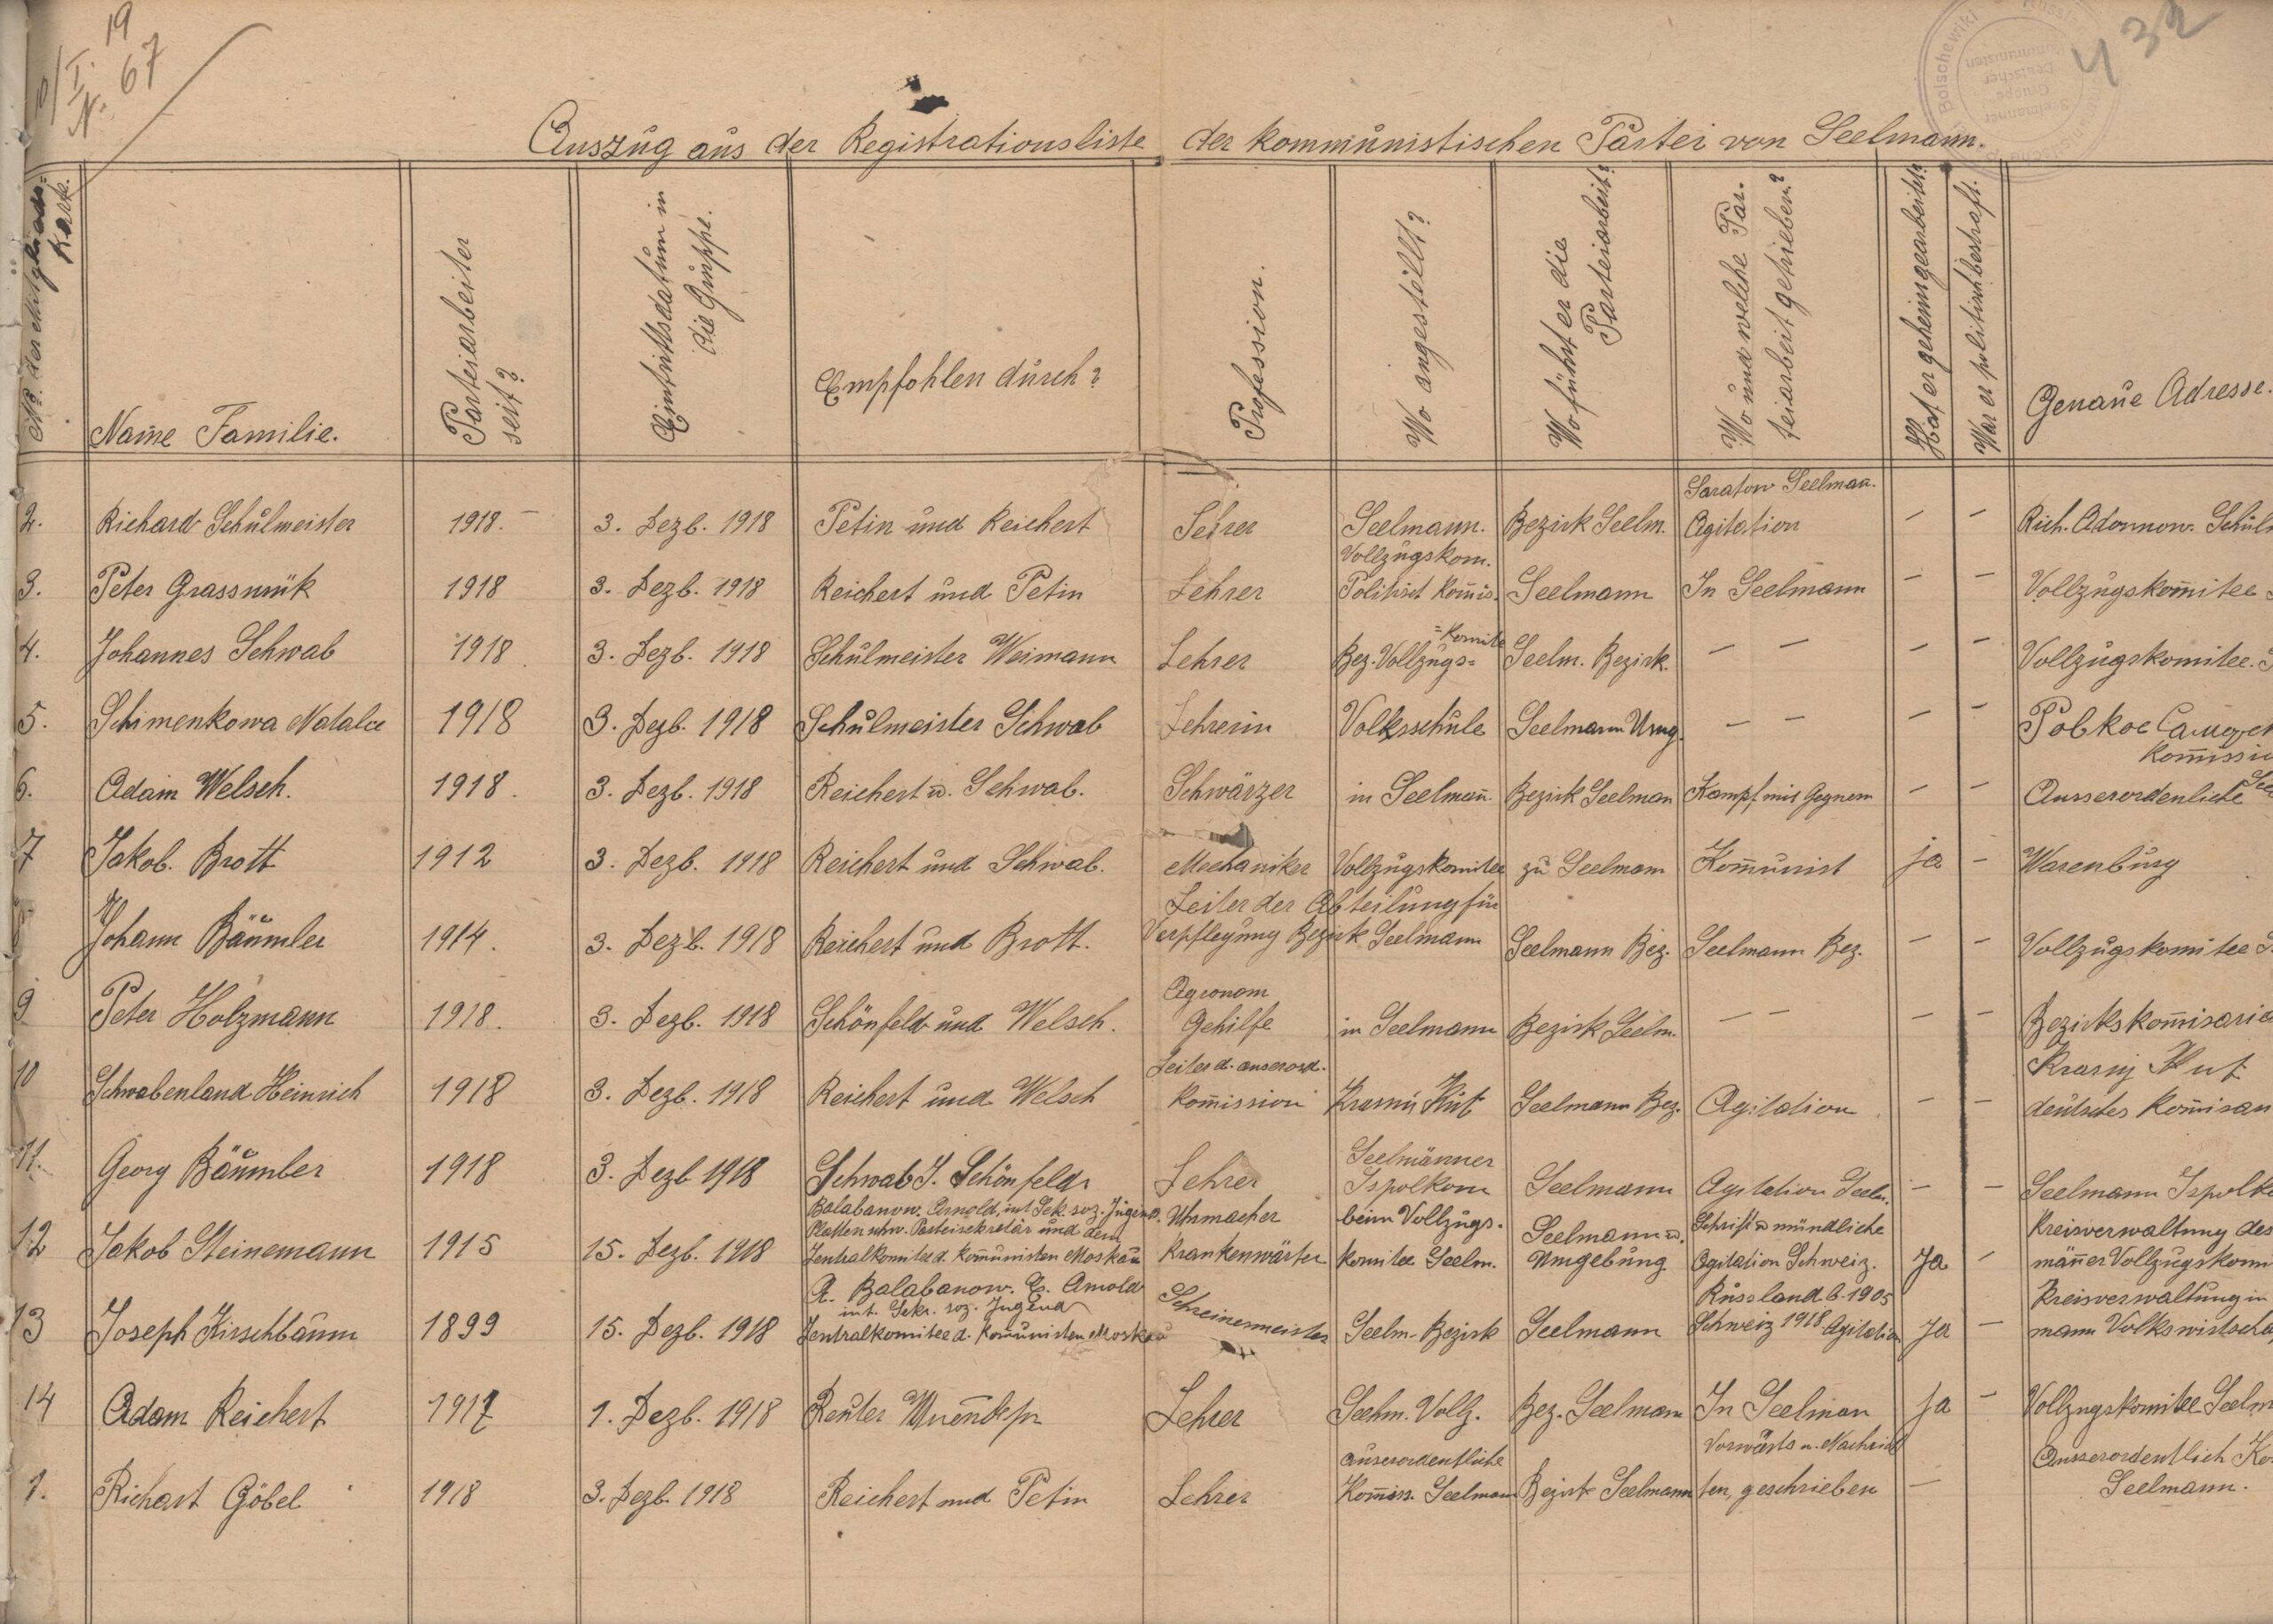 19
I.
N. 67
432
Bolschewiki
Auszug aus der Registrationsliste der kommunistischen Partei von Seelmann.
No der Mitglieds=
Kart.
Name Familie.
Parteiarbeiter
seit?
Eintrittsdatum in
die Gruppe.
Empfohlen durch?
Profession.
Wo angestellt?
Wo führt er die
Parteiarbeit?
Wo und welche Par.
teiarbeit getrieben?
Hat er geheim gearbeitet?
War er politisch bestraft.
Genaue Adresse.
Saratow Seelman.
2. Richard Schulmeister 1918. – 3. Dezb. 1918 Petin und Reichert Lehrer Seelmann. Bezirk Seelm. Agitation – – Rich. Schul
Vollzugskom.
3. Peter Grassmük 1918 3. Dezb. 1918 Reichert und Petin Lehrer Kom̄is. Seelmann In Seelmann – – Vollzugskom̄itee
=Komite
4. Johannes Schwab 1918. 3. Dezb. 1918 Schulmeister Weimann Lehrer Bez. Vollzugs= Seelm. Bezirk. – – – – Vollzugskomitee. S
5. Schimenkowa Natalie 1918 3. Dezb. 1918 Schulmeister Schwab Lehrerin Volksschule Seelmann Umg. – – – –
Kom̄issi
6. Adam Welsch. 1918. 3. Dezb. 1918 Reichert u. Schwab. Schwärzer in Seelman̄. Bezirk Seelman Kampf mit Gegnern – – Ausserordenliche See
7 Jakob. Brott 1912 3. Dezb. 1918 Reichert und Schwab. Mechaniker Vollzugskomitee zu Seelmann Kom̄unist ja – Warenburg
Leiter der Abteilung für
Johann Bäumler 1914. 3. Dezb. 1918 Reichert und Brott. Verpflegung Bezirk Seelmann Seelmann Bez. Seelmann Bez. – – Vollzugskomitee S
Agronom
9 Peter Holzmann 1918. 3. Dezb. 1918 Schönfeld und Welsch. Gehilfe in Seelmann Bezirk Seelm. – – – – Bezirkskom̄isaria
Leiter d. auserord. Krasnj Kut
10 Schwabenland Heinrich 1918 3. Dezb. 1918 Reichert und Welsch Kom̄ission Krasnij Kut Seelmann Bez. Agitation – – deutsches Kom̄isar
Seelmänner
11. Georg Bäumler 1918 3. Dezb 1918 Schwab J. Schönfeld Lehrer Ispolkom Seelmann Agitation Seelm. – – Seelmann Ispolk
Balabanow. Arnold, int Sek. soz. Jugend. Uhrmacher beim Vollzugs. Schrift u mündliche Kreisverwaltung des
Platten schw. Parteisekretär und dem
12 Jakob Steinemann 1915 15. Dezb. 1918 Zentralkomitee d. Kom̄unisten Moskau Krankenwärter komitee Seelm. Seelmann u. Umgebung Agitation Schweiz. Ja – männer Vollzugskom
A. Balabanow. E. Arnold Russland b. 1905 Kreisverwaltung in
int. Sekr. soz. Jugend
13 Joseph Kirschbaum 1899 15. Dezb. 1918 Zentralkomitee d. Kom̄unisten Moskau Schreinermeister Seelm. Bezirk Seelmann Schweiz 1918 Agitation Ja – mann Volkswirtscha
14 Adam Reichert 1917 1. Dezb. 1918 Reuter Lehrer Seelm. Vollz. Bez. Seelmann In Seelman Ja – Vollzugskomitee Seelm
auserordentliche Vorwärts u. Nachrich Ausserordentlich Ko
1. Richart Göbel 1918 3. Dezb. 1918 Reichert und Petin Lehrer Kom̄iss. Seelmann Bezirk Seelmann ten, geschrieben – Seelmann.